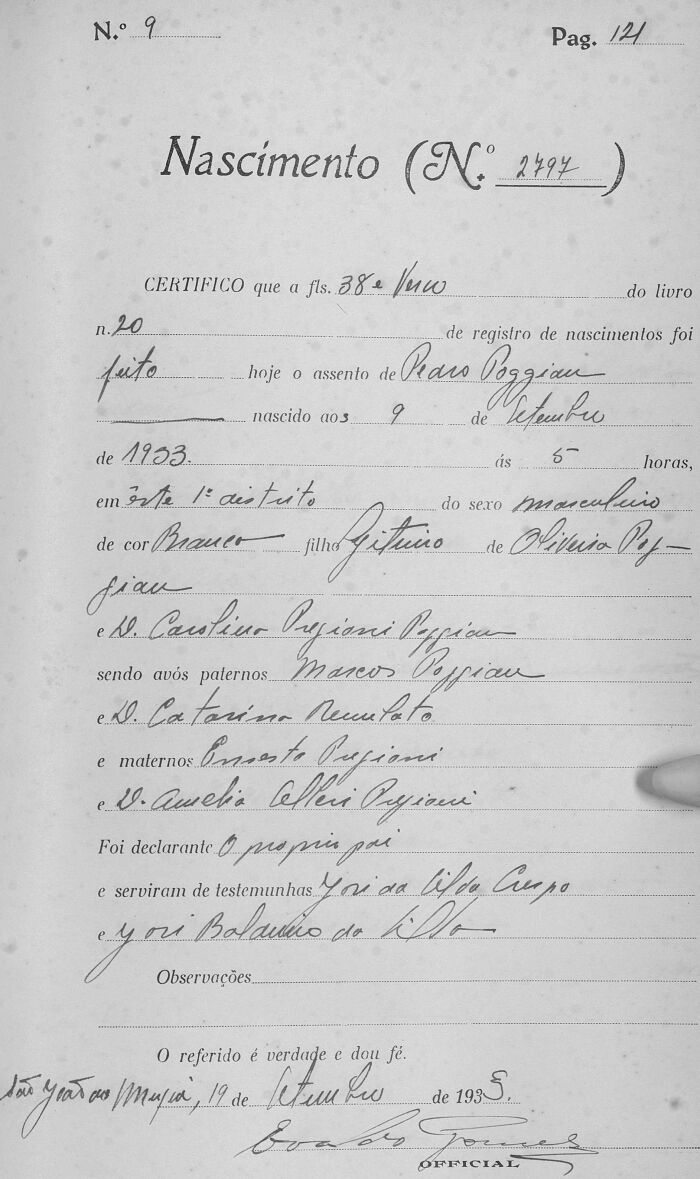 N.º 9 Pag. 121
Nascimento (N.º 2797)
CERTIFICO que a fls. 38 e Verso do livro
n. 20 de registro de nascimentos foi
feito hoje o assento de Pedro Poggian
nascido aos 9 de Setembro
de 1933. ás 5 horas,
em êste 1º distrito do sexo masculino
de cor Branco filho de Oliveira Pog-
gian
e D. Carolina Pregioni Poggian
sendo avós paternos Marcos Poggian
e D. Catarina
e maternos Ernesto Pregioni
e D. Amelia Pregioni
Foi declarante O proprio pai
e serviram de testemunhas da Silva Crespo
e da Silva
Observações
O referido é verdade e dou fé.
São João do, 19 de Setembro de 1933.
Evaldo Gomes
OFFICIAL